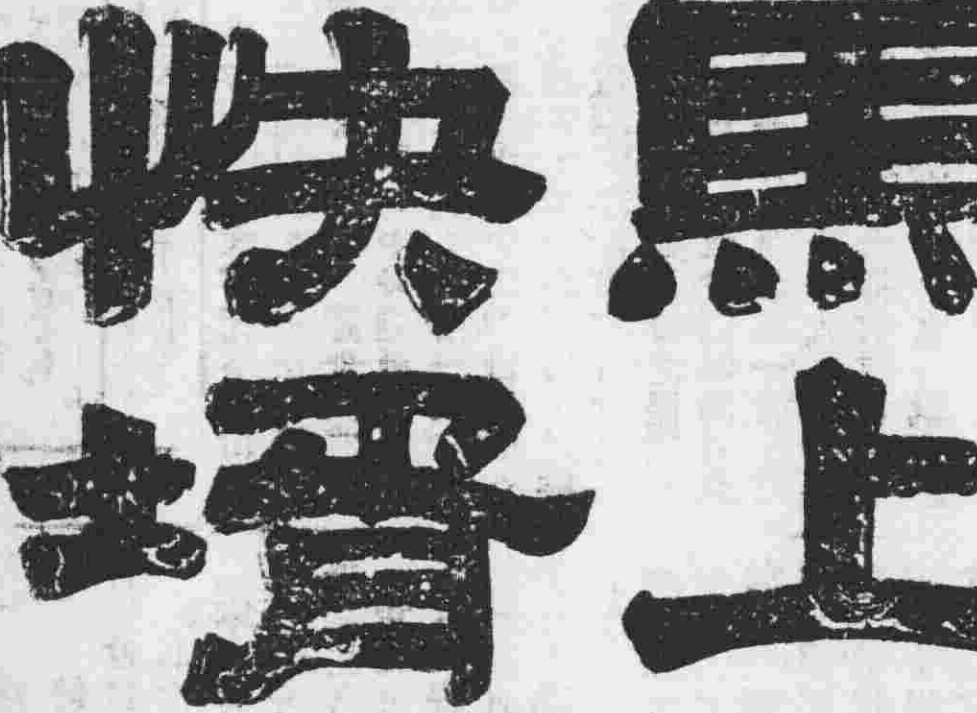 馬上
快壻